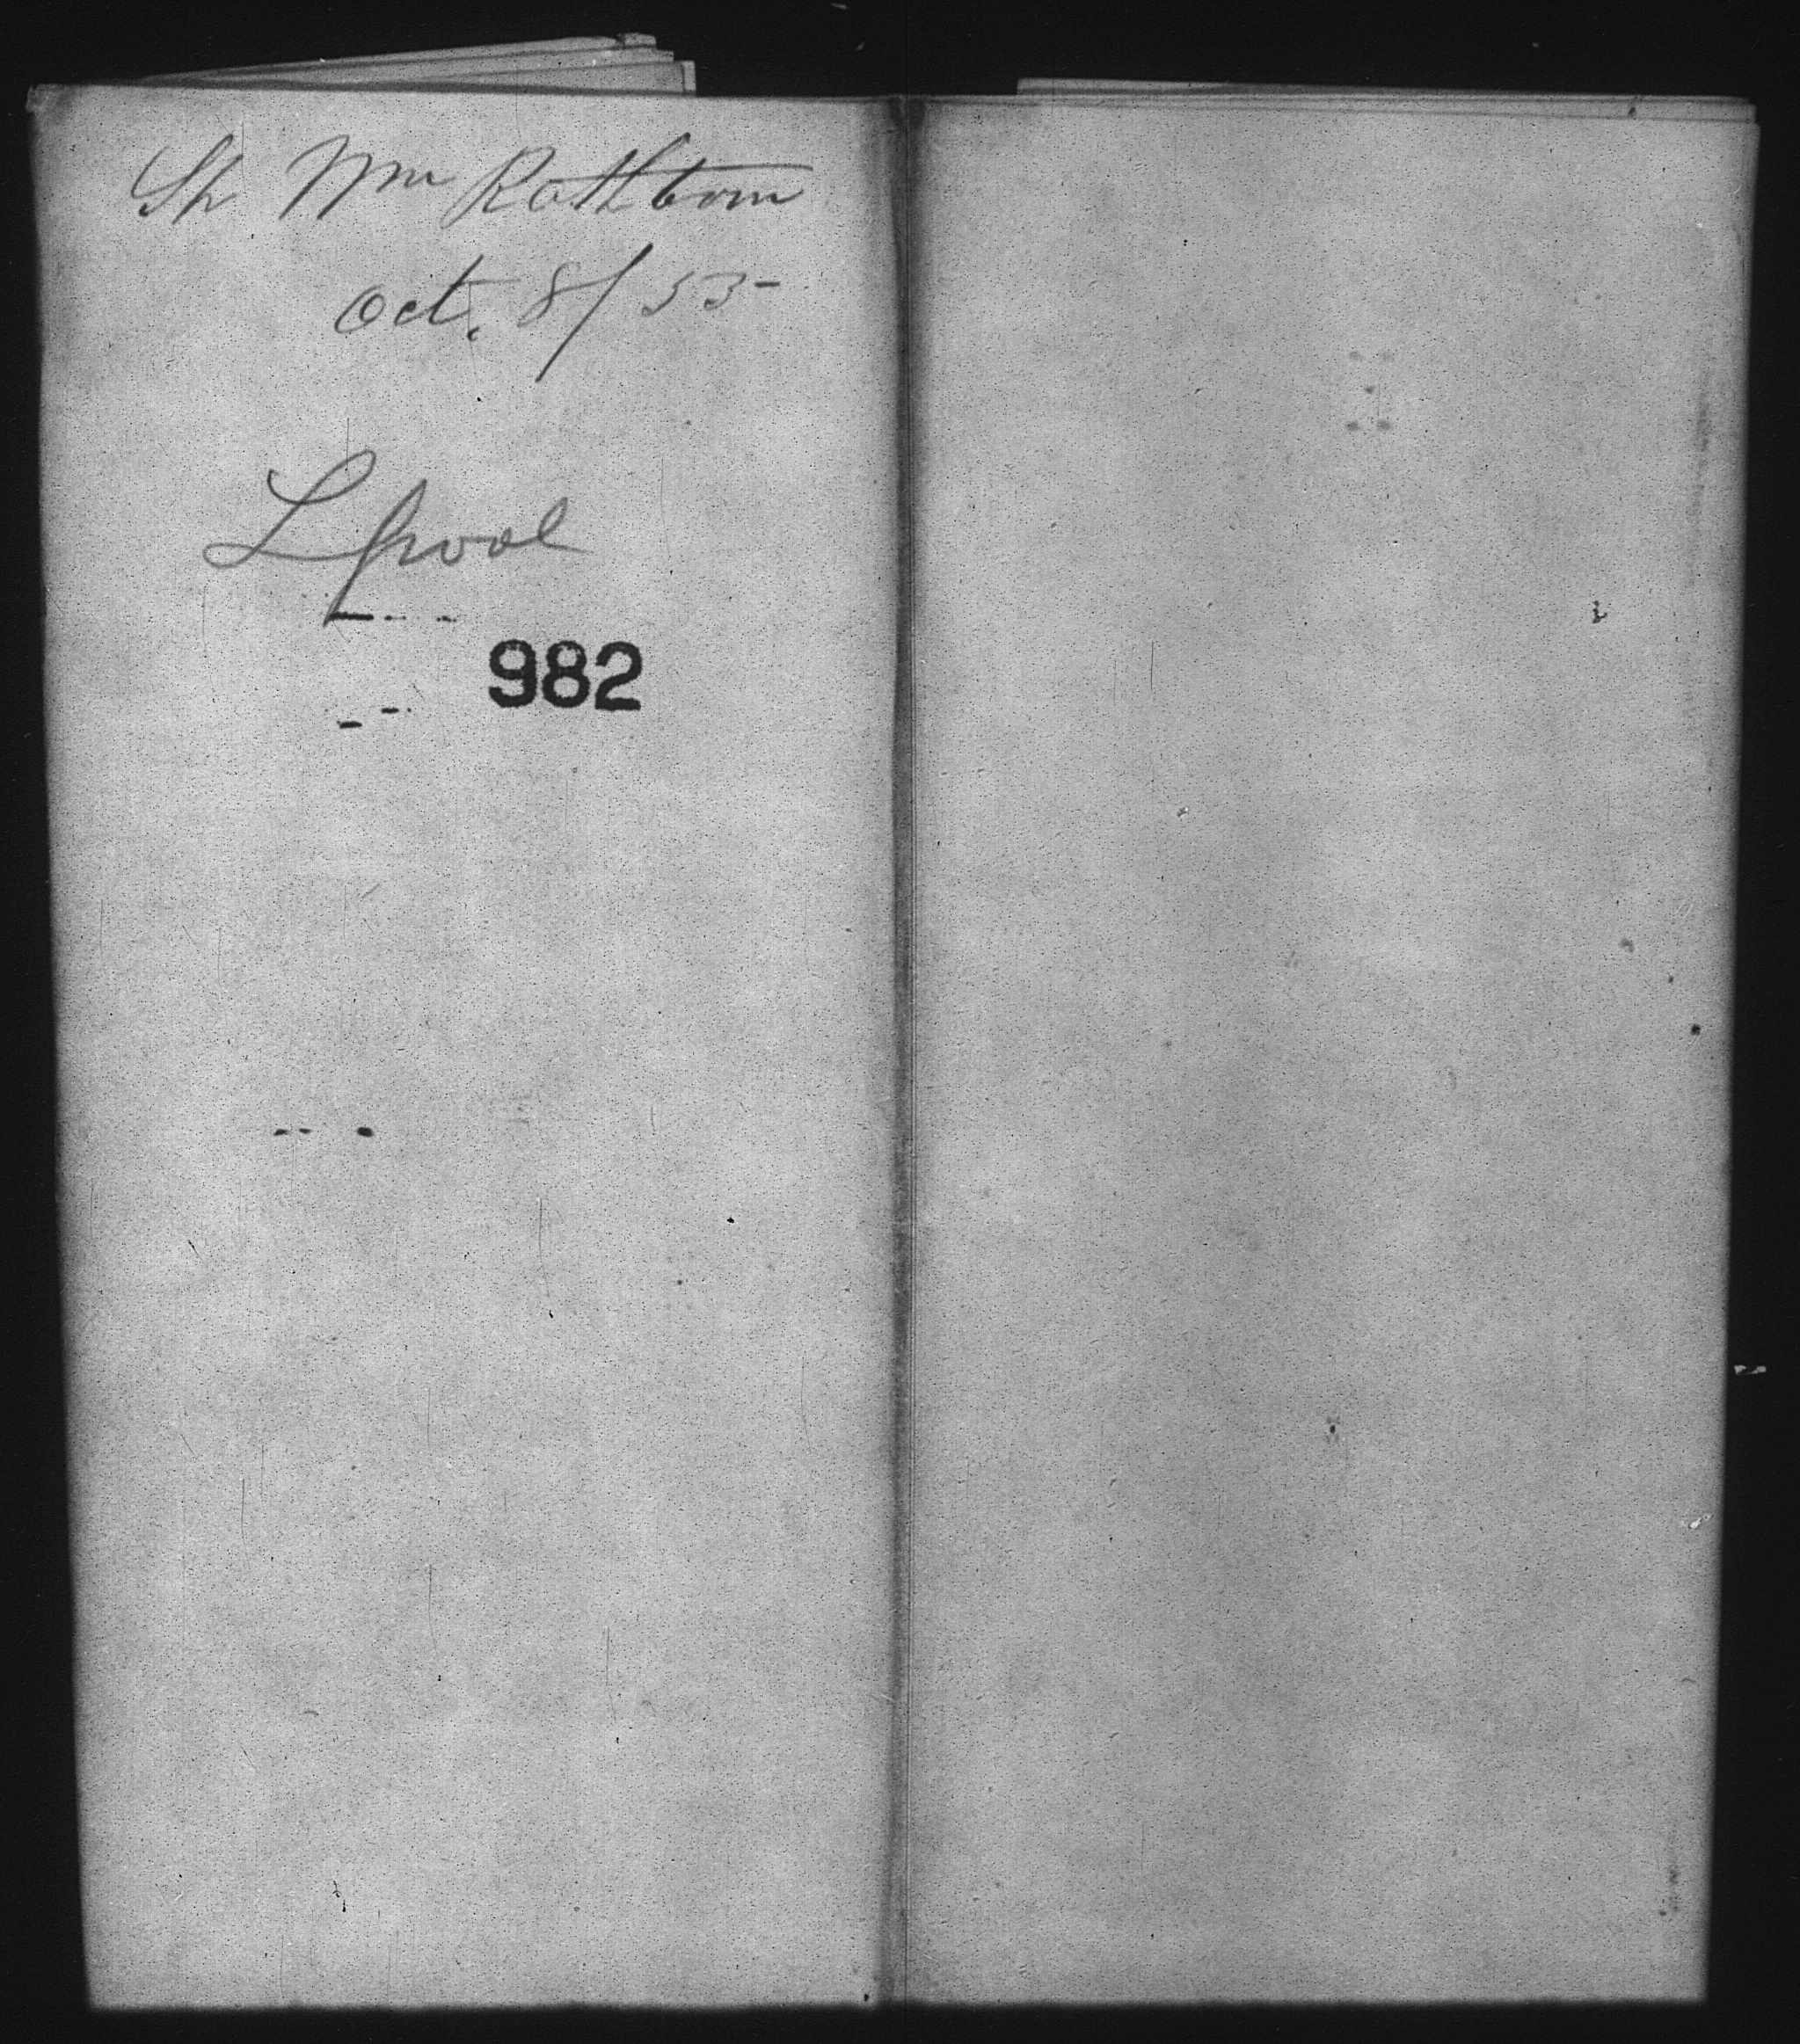 Sh Wm Rathbom
Oct. 8/53-
Lpool
982